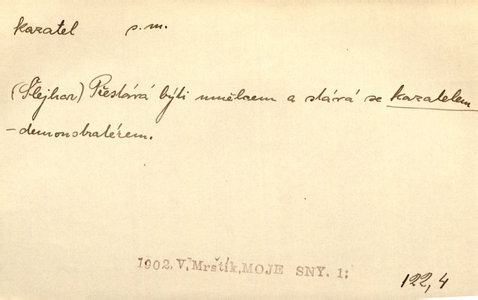 kazatel s.m.
(Šlejhar) Přestává býti umělcem a stává se kazatelem
-demonstratérem.
1902, V. Mrštík, MOJE SNY. 1:
122,4